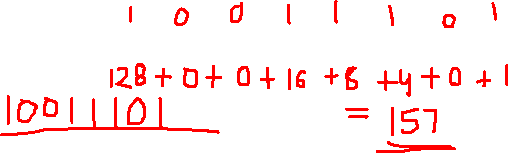 1 0 0 1 1 1 0 1
128+0+0+16+8+4+0+1
10011101
= 157